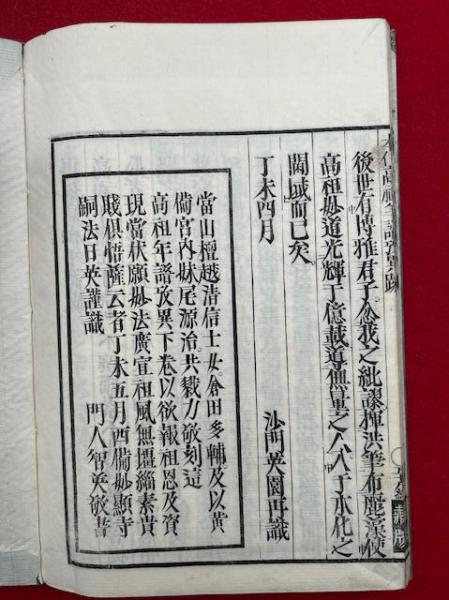 本化高祖年譜攷異跋
後世有博雅君子念我之紕謬揮洪筆布麗藻使
高祖妙道光輝于億載導無量之人入于本化之
閫域而已矣
丁未四月　沙門英園再識
當山檀越清信士女倉田多輔及以黃
備宮内妹尾源治共戮力敬刻這
高祖年譜攷異下卷以欲報祖恩及資
現當伏願妙法廣宣祖風無彊緇素貴
賤俱悟薩云者丁未五月西備妙顯寺
嗣法日英謹識　門人智英敬書